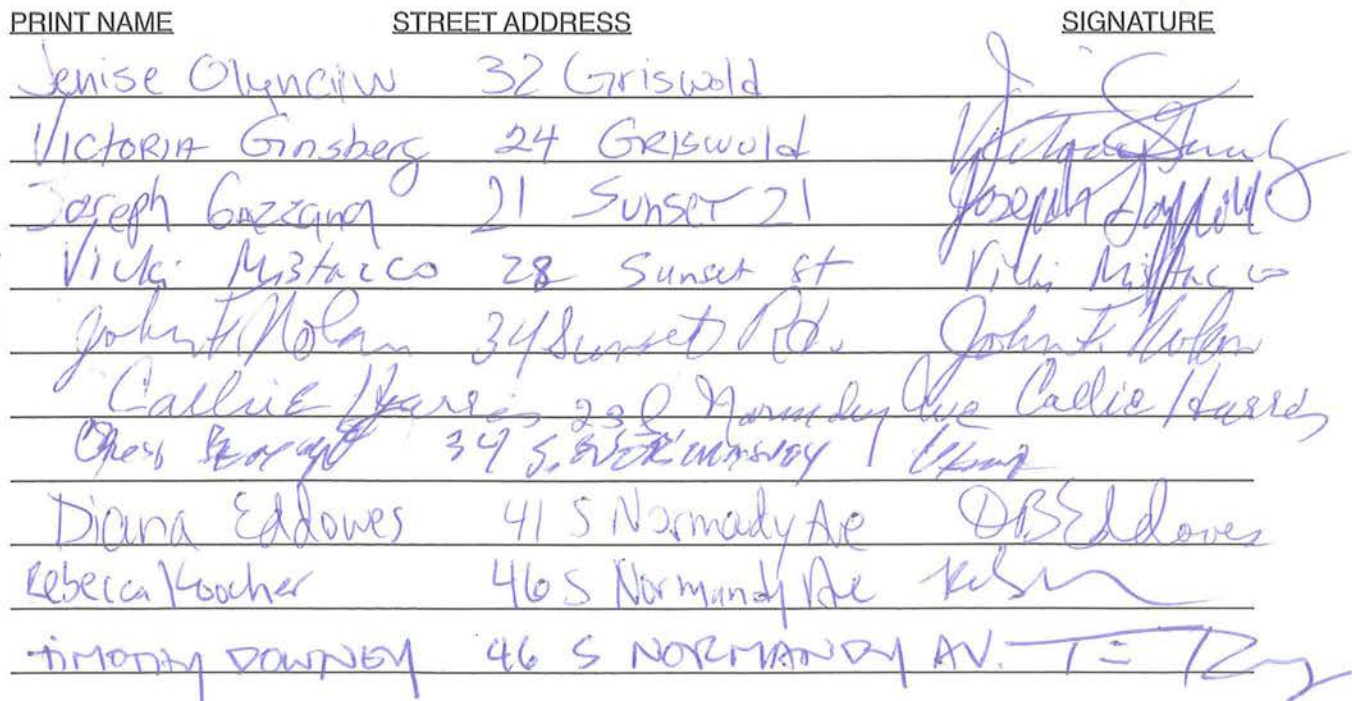 PRINT NAME STREET ADDRESS SIGNATURE
Jenise 32 Griswold
VICTORIA Ginsberg 24 GRISWOLD
Joseph Gazzana 21 Sunset 21 Joseph
Vicki Mistacco 28 Sunset St Vicki Mistacco
John F. Nolan 34 Sunset Rd. John F. Nolan
Callie Harris Normandy Ave Callie Harris
34 S.
Diana Eddowes 41 S Normady Ave DBEddowes
Rebecca Koocher 46 S Normandy Ave
TIMOTHY DOWNEY 46 S NORMANDY AV.